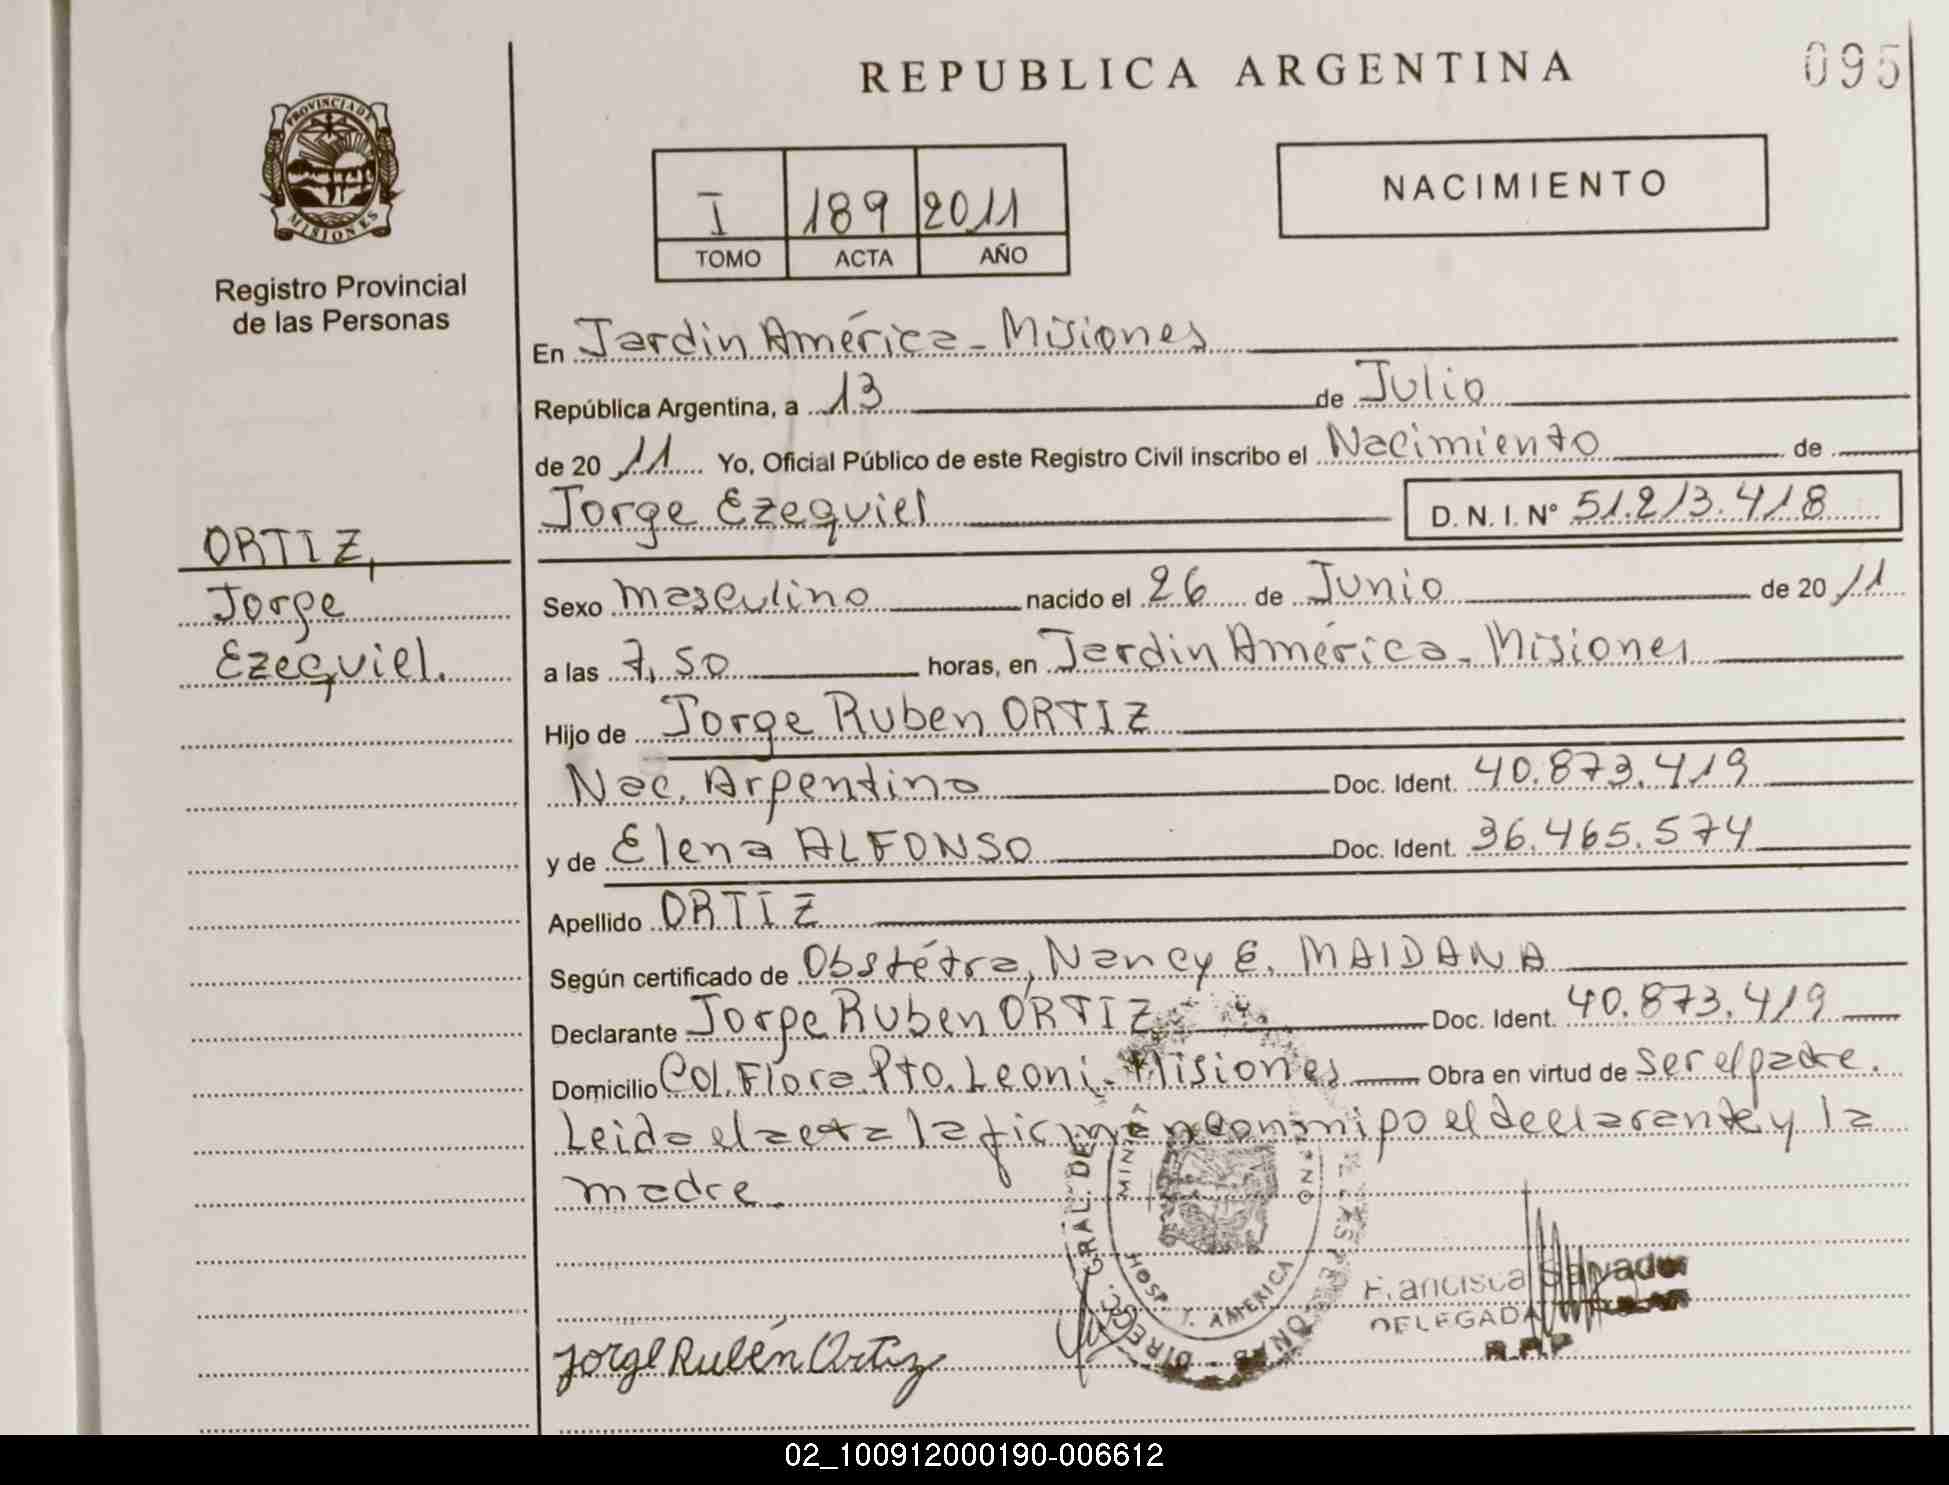 REPUBLICA ARGENTINA
095
PROVINCIA DE
MISIONES
Registro Provincial
de las Personas
I 189 2011
TOMO ACTA AÑO
NACIMIENTO
En Jardin América - Misiones
República Argentina, a 13 de Julio
de 20 11 Yo, Oficial Público de este Registro Civil inscribo el Nacimiento de
Jorge Ezequiel D. N. I. N° 51.213.418
ORTIZ,
Jorge
Ezequiel.
Sexo masculino nacido el 26 de Junio de 20 11
a las 7,50 horas, en Jardin América - Misiones
Hijo de Jorge Ruben ORTIZ
Nac. Argentina Doc. Ident. 40.873.419
y de Elena ALFONSO Doc. Ident. 36.465.574
Apellido ORTIZ
Según certificado de Obstétra, Nancy E. MAIDANA
Declarante Jorge Ruben ORTIZ Doc. Ident. 40.873.419
Domicilio Col. Flora Pto. Leoni - Misiones Obra en virtud de ser el padre.
Leida el acta la firman conmigo el declarante y la
madre.
DIRECC. GRAL. DE
HOSP. J. AMERICA
Francisca Salvador
DELEGADA TITULAR
R.P.P
Jorge Rubén Ortiz
02_100912000190-006612